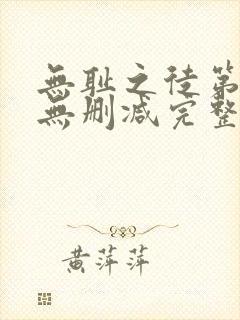 無耻之徒第
無删减完整
黄萍萍